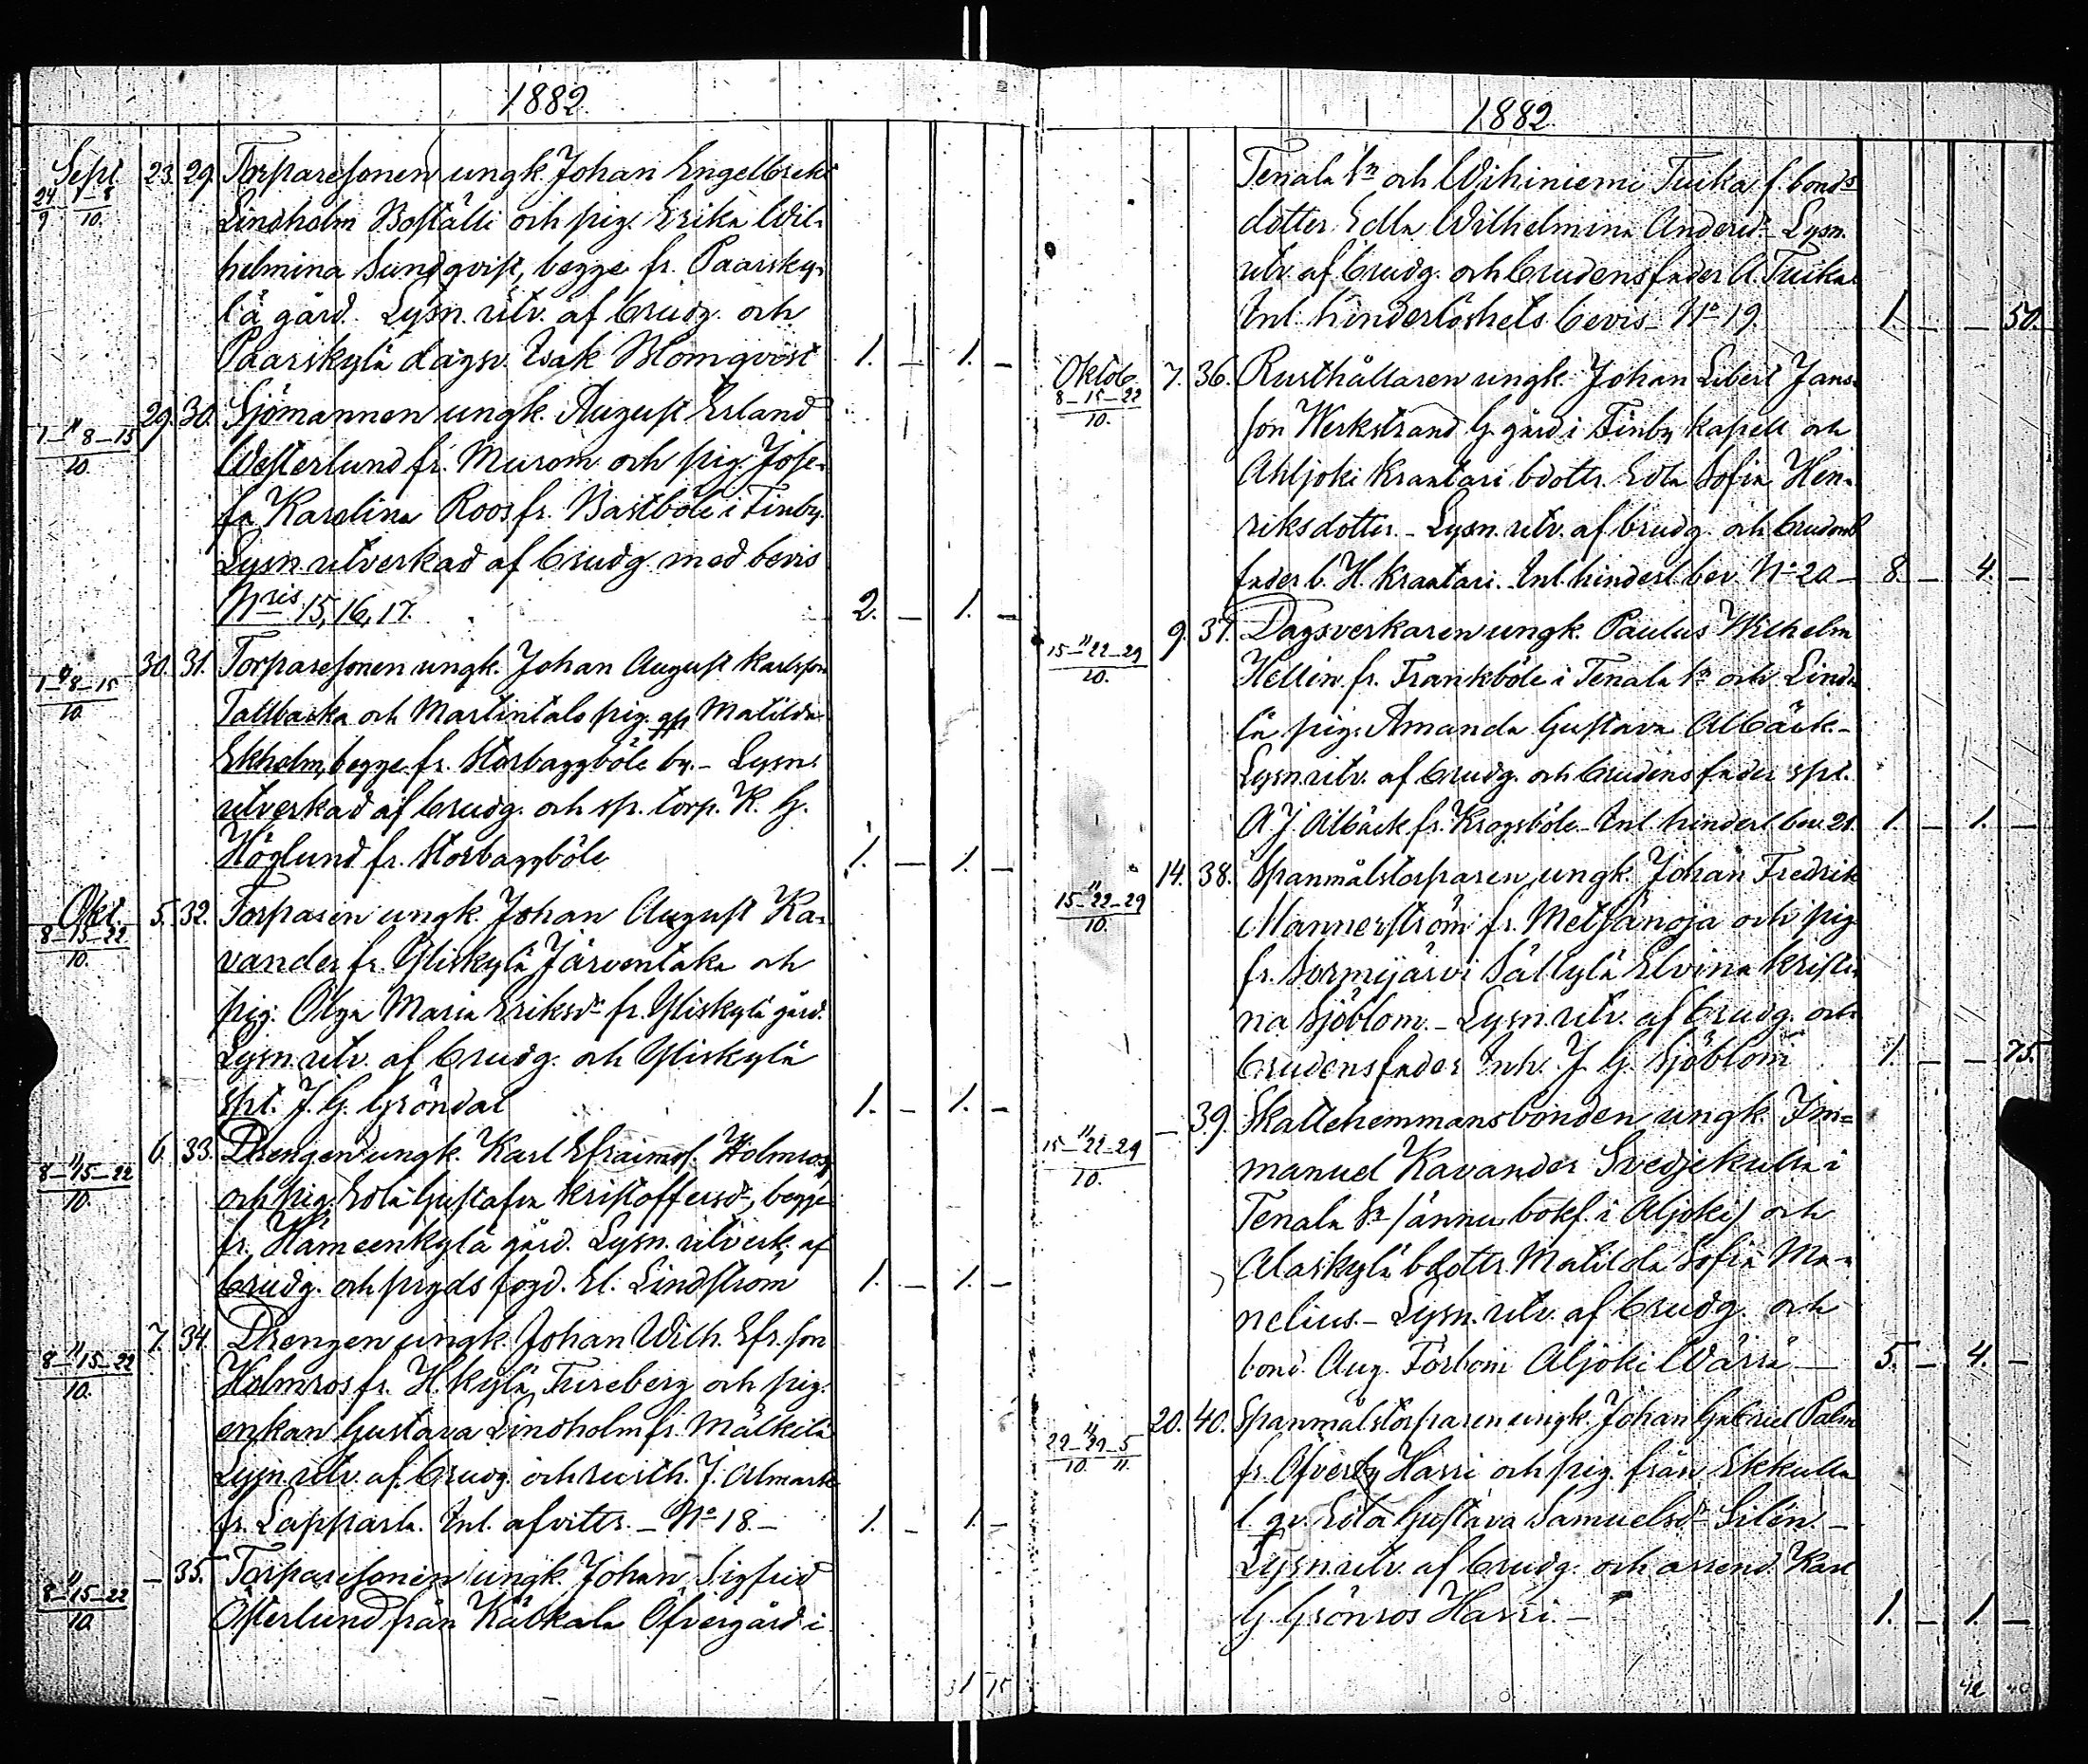 1882
Sept. 23. 29. Torparesonen ungk. Johan Engelbrekt
24 1–8 Lindholm Boställe och pig. Erika Wil-
9 10. helmina Sundqvist, begge fr. Paarsky-
lä gård. Lysn. utv. af brudg. och
Paarskylä dagsv. Isak Blomqvist 1. – 1. –
29. 30. Sjömannen ungk. August Erland
1–8–15 Westerlund fr. Murom och pig. Jose-
10. fa Karolina Roos fr. Bastböle i Finby.
Lysn. utverkad af brudg. med bevis
Nris 15, 16, 17. 2. – 1. –
30. 31. Torparesonen ungk. Johan August Karlsson
1–8–15 Tallbacka och Martintalo pig. Matilda
10. Ekholm, begge fr. Storbaggböle by. – Lysn.
utverkad af brudg. och sp. torp. K. G.
Höglund fr. Storbaggböle 1. – 1. –
Okt. 5. 32. Torparen ungk. Johan August Ka-
8–15–22 vander fr. Yliskylä Järventaka och
10. pig. Olga Maria Eriksdr fr. Yliskylä gård.
Lysn. utv. af brudg. och Yliskylä
spt. J. G. Gröndal 1. – 1. –
" 6. 33. Drengen ungk. Karl Efraims. Holmros
8–15–22 och pig. Edla Gustafva Kristoffersdr, begge
10. fr. Hämeenkylä gård. Lysn. utverk. af
brudg. och pryds fogd. El. Lindström 1. – 1. –
" 7. 34. Drengen ungk. Johan Wilh. Efr. son
8–15–22 Holmros fr. H. kylä, Fureberg och pig.
10. enkan Gustava Lindholm fr. Mälkilä
Lysn. utv. af brudg. och rusth. J. Almark
fr. Lapparla. Inl. afvittr. – No 18. – 1. – 1. –
" – 35. Torparesonen ungk. Johan Sigfrid
8–15–22 Österlund från Kävkala Öfvergård i
10.
31 15
1882
Tenala sn och Wihiniemi Tuika f. bonds
dotter Edla Wilhelmina Andersdr – Lysn.
utv. af brudg. och brudens fader A. Tuika
Inl. hinderlöshets bevis No 19. 1. – – 50.
Oktob. 7. 36. Rusthållaren ungk. Johan Libert Jans-
8–15–22 son Werkstrand G. gård i Finby kapell och
10. Ahljoki Kraatari bdottr. Edla Sofia Hen-
riksdotter. – Lysn. utv. af brudg. och brudens
fader b. H. Kraatari. Inl. hinderl. bev. No 20 – 8. – 4. –
" 9. 37. Dagsverkaren ungk. Paulus Wilhelm
15–22–29 Hellén fr. Frankböle i Tenala sn och Lind-
10. lä pig. Amanda Gustava Albäck. –
Lysn. utv. af brudg. och brudens fader spt.
A J. Albäck fr. Krogsböle – Inl. hinderl. bev. 21. 1. – 1. –
" 14. 38. Spanmålstorparen ungk. Johan Fredrik
15–22–29 Mannerström fr. Metsänoja och pig.
10. fr. Sormijärvi Sällylä Elvina Kristi-
na Sjöblom. – Lysn. utv. af brudg. och
brudens fader Inh. J. G. Sjöblom 1. – – 75.
" – 39. Skattehemmansbonden ungk. Im-
15–22–29 manuel Kavander Svedjekulla i
10. Tenala sn /ännu bokf. i Aljoki/ och
Alaskylä bdottr. Matilda Sofia Ma-
nelius. – Lysn. utv. af brudg. och
bond. Aug. Forbom Aljoki Wärri – 5. – 4. –
" 20. 40. Spanmålstorparen ungk. Johan Gabriel Palm
22–29–5 fr. Öfverby Harri och pig. från Ekkulla
10. 11. l. gd. Edla Gustava Samuelsdr Silén. –
Lysn. utv. af brudg. och arrend. Karl
G. Grönros Harri. – 1. – 1. –